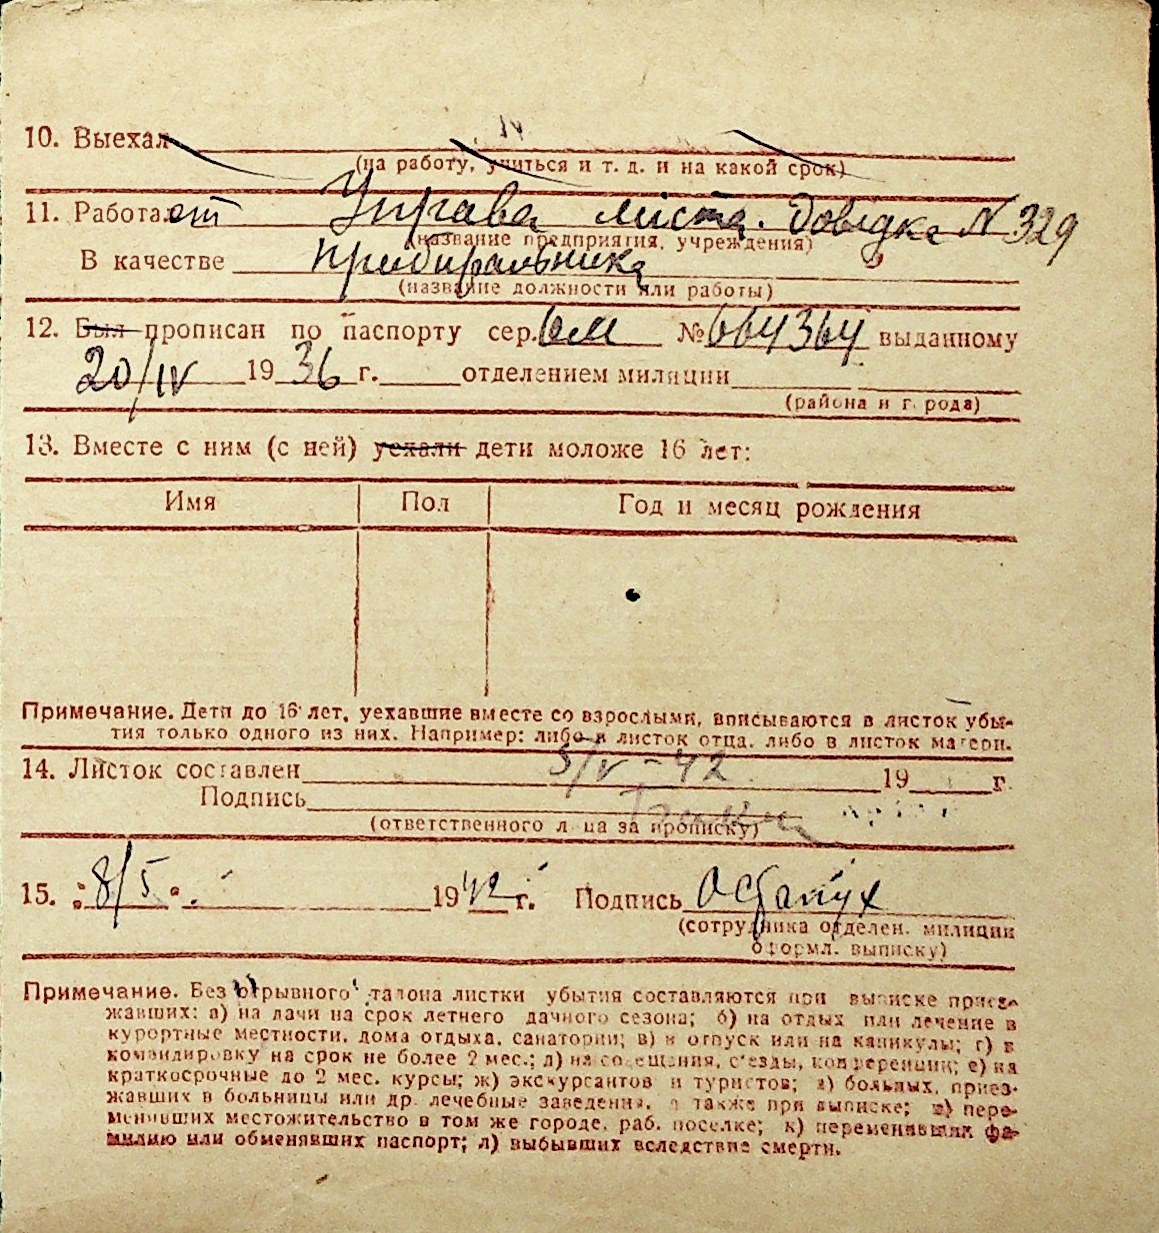 10. Выехал
(на работу, учиться и т. д. и на какой срок)
11. Работает Управа міста. Довідка № 329
(название предприятия, учреждения)
В качестве прибиральника
(название должности или работы)
12. Был прописан по паспорту сер. № 664364 выданному
20/IV 1936 г. отделением милиции
(района и г. рода)
13. Вместе с ним (с ней) уехали дети моложе 16 лет:
Имя Пол Год и месяц рождения
Примечание. Дети до 16 лет, уехавшие вместе со взрослыми, вписываются в листок убы-
тия только одного из них. Например: либо в листок отца, либо в листок матери.
14. Листок составлен 5/V - 42 19 г.
Подпись
(ответственного лица за прописку)
15. "8/5". 1942 г. Подпись Остапух
(сотрудника отделен. милиции
оформл. выписку)
Примечание. Без отрывного талона листки убытия составляются при выписке приез-
жавших: а) на дачи на срок летнего дачного сезона; б) на отдых или лечение в
курортные местности, дома отдыха, санатории; в) в отпуск или на каникулы; г) в
командировку на срок не более 2 мес.; д) на совещания, съезды, конференции; е) на
краткосрочные до 2 мес. курсы; ж) экскурсантов и туристов; з) больных, приез-
жавших в больницы или др. лечебные заведения, а также при выписке; и) пере-
менивших местожительство в том же городе, раб. поселке; к) переменивших фа-
милию или обменявших паспорт; л) выбывших вследствие смерти.